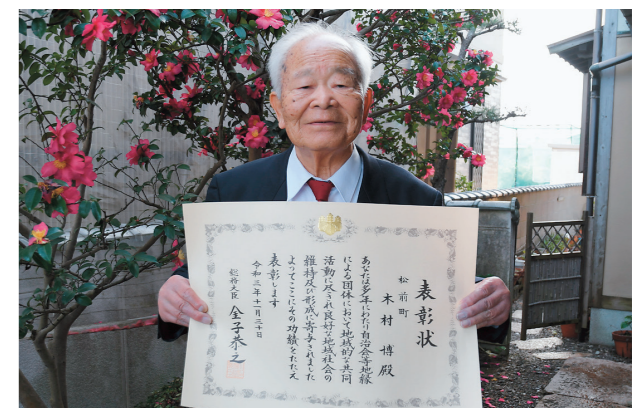 表彰状
松前町
木村 博殿
あなたは多年にわたり自治会等地縁
による団体において地域的な共同
活動に尽され良好な地域社会の
維持及び形成に寄与されました
よってここにその功績をたたえ
表彰します
令和三年十一月三十日
総務大臣 金子恭之